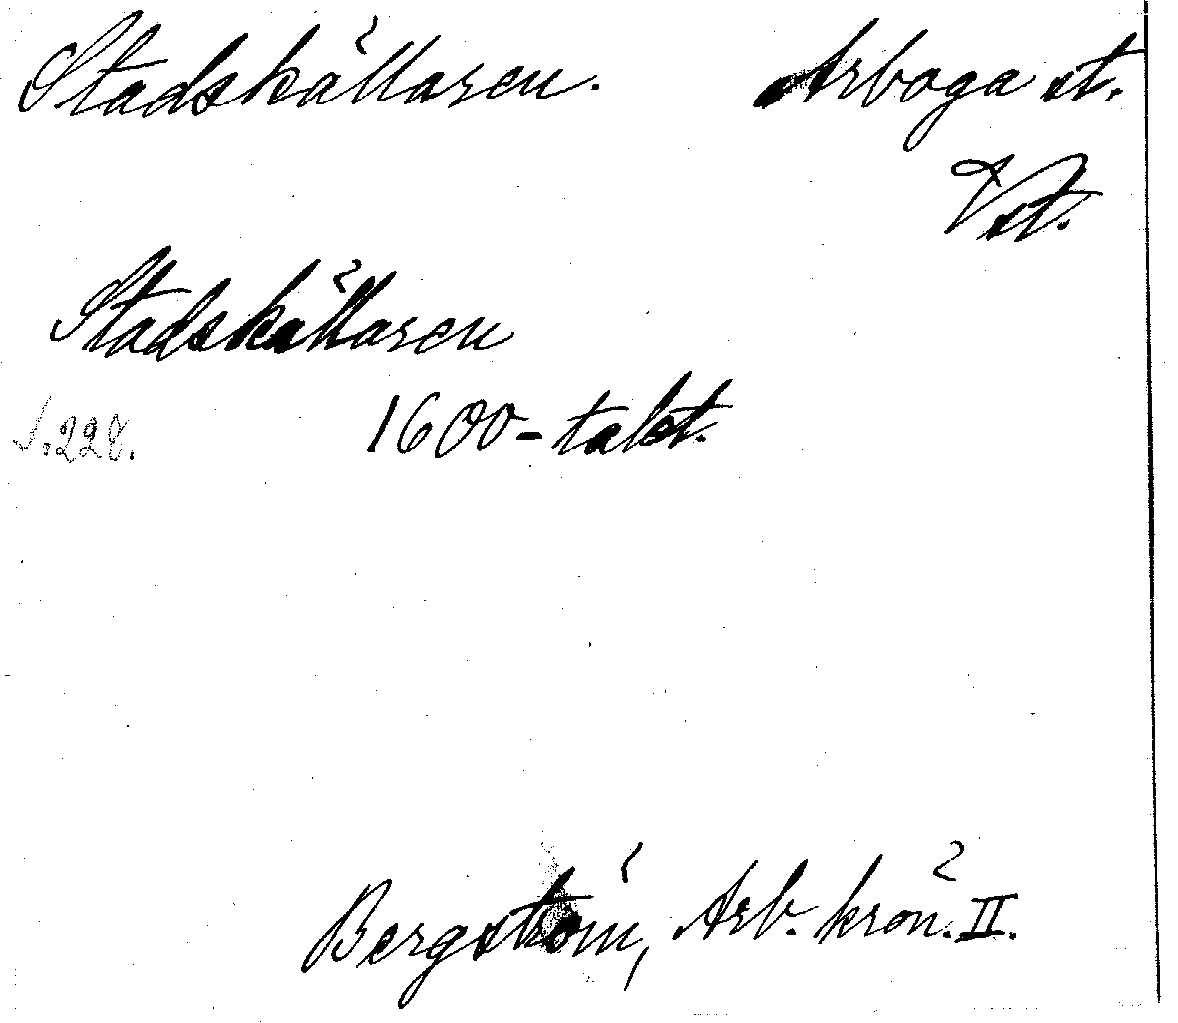 Stadskällaren. Arboga st.
Vst.
Stadskällaren
S. 228. 1600-talet.
Bergström, Arb. krön. II.